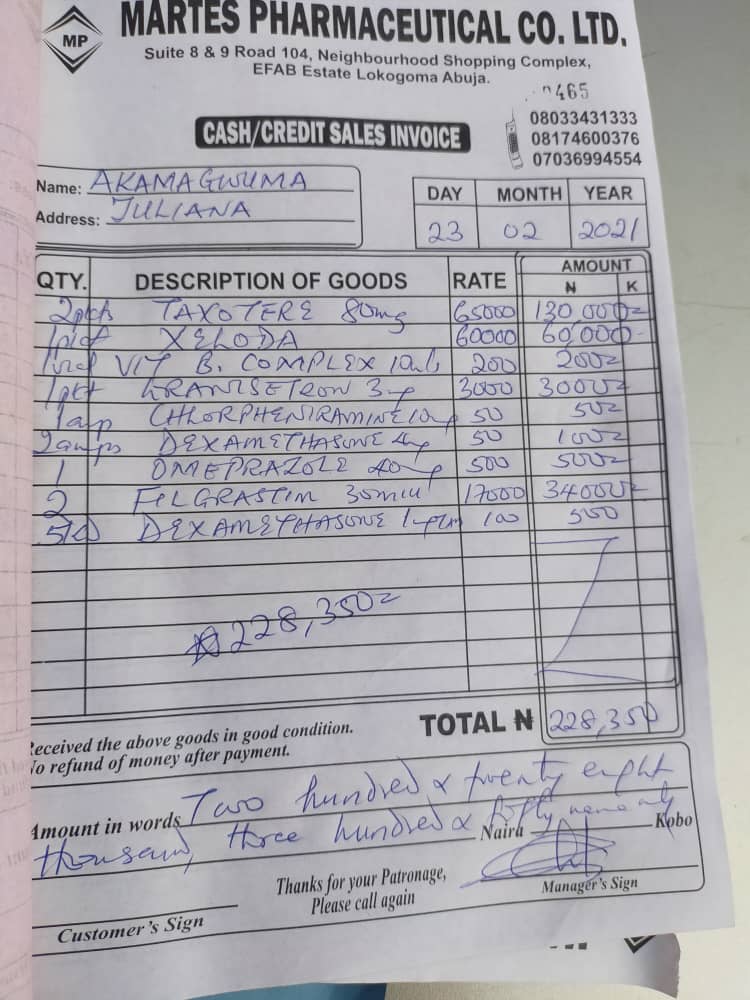 MP
MARTES PHARMACEUTICAL CO. LTD.
Suite 8 & 9 Road 104, Neighbourhood Shopping Complex,
EFAB Estate Lokogoma Abuja.
465
08033431333
CASH/CREDIT SALES INVOICE
08174600376
07036994554
Name: AKAMAGWUMA
Address: JULIANA
DAY MONTH YEAR
23 02 2021
QTY. DESCRIPTION OF GOODS RATE AMOUNT
₦ K
2pkts TAXOTERE 80mg 65000 130,000=
1pkt XELODA 60000 60,000=
1vial VIT B. COMPLEX 10ml 200 200=
1pkt GRANISETRON 3mg 3000 3000=
1amp CHLORPHENIRAMINE 10mg 50 50=
2amps DEXAMETHASONE 4mg 50 100=
1 OMEPRAZOLE 40mg 500 500=
2 FILGRASTIM 30miu 17000 34000=
DEXAMETHASONE 100 500
₦228,350=
TOTAL ₦ 228,350
Received the above goods in good condition.
No refund of money after payment.
Amount in words Two hundred & twenty eight
thousand, three hundred & fifty naira only Naira Kobo
Thanks for your Patronage,
Please call again
Manager's Sign
Customer's Sign